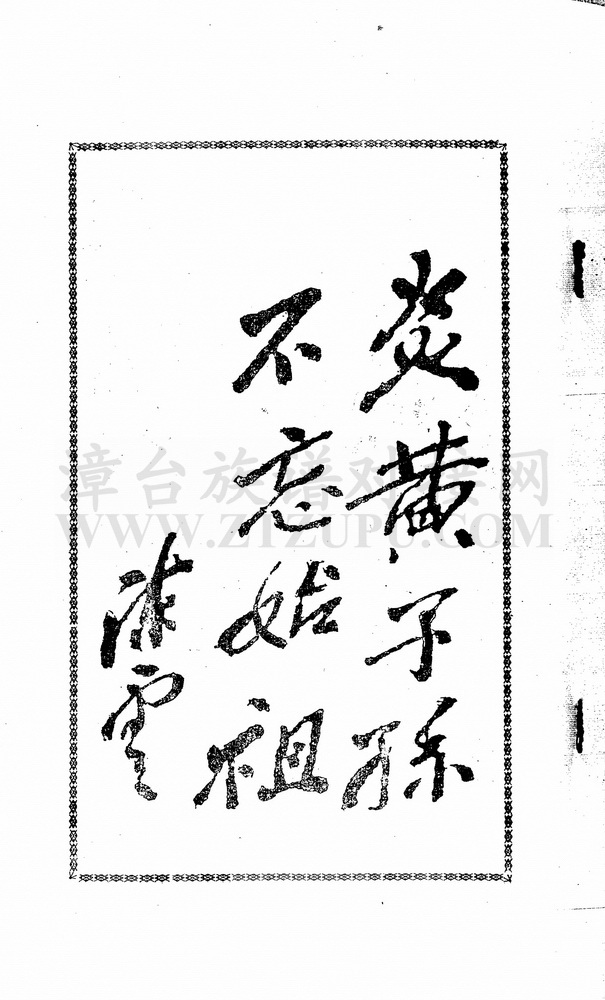 炎黄子孫
不忘始祖
陳雲
漳台族谱对接网
WWW.ZTZUPU.COM